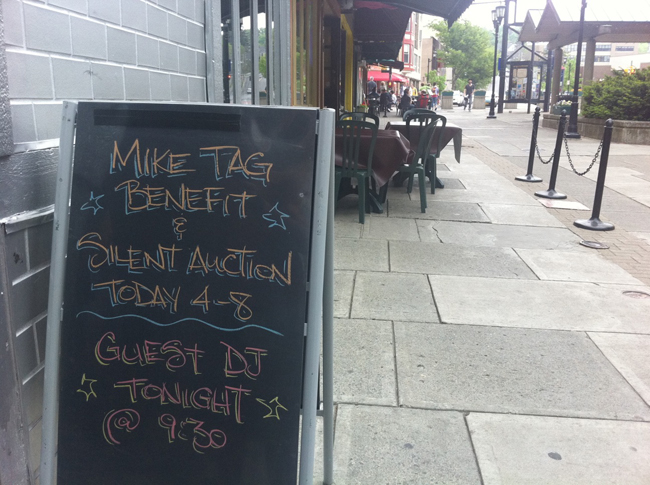 MIKE TAG
BENEFIT
&
SILENT AUCTION
TODAY 4-8
GUEST DJ
TONIGHT
@ 9:30